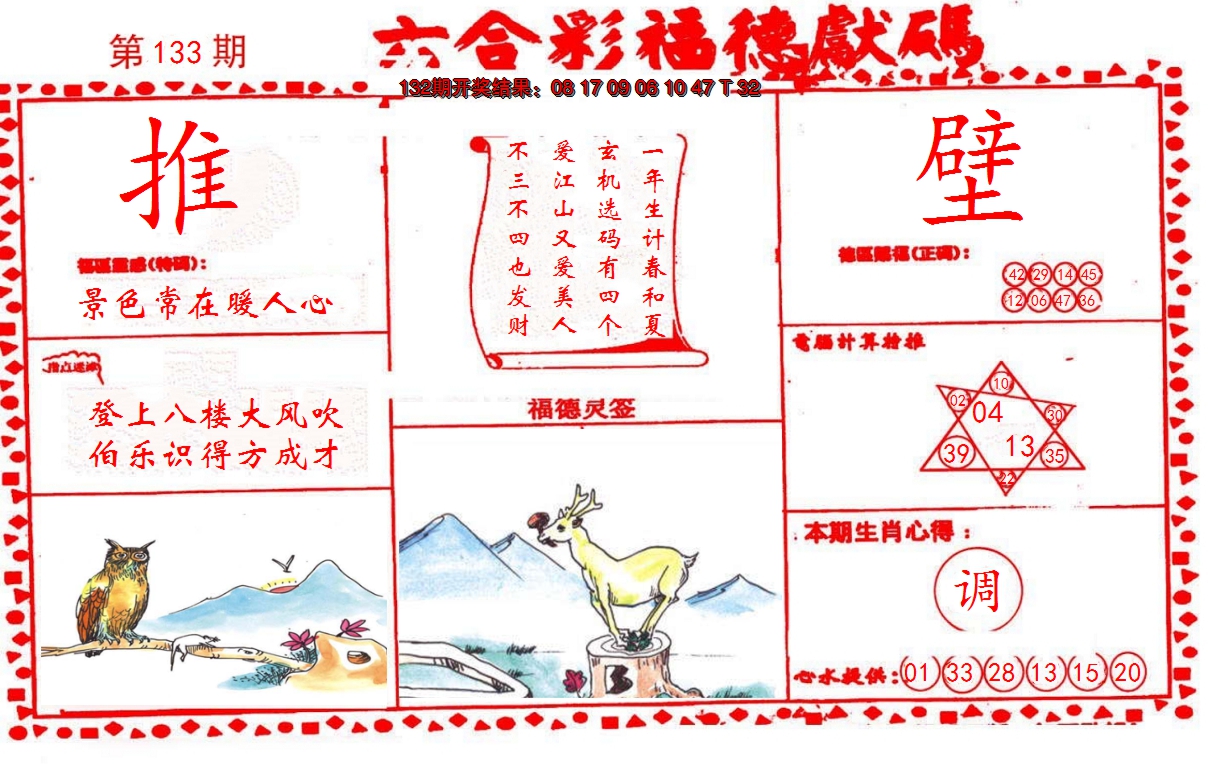 六合彩福德獻碼
第133期
132期开奖结果：08 17 09 06 10 47 T 32
推
福區靈感(特碼)：
景色常在暖人心
指点迷津
登上八楼大风吹
伯乐识得方成才
一年生计春和夏
玄机选码有四个
爱江山又爱美人
不三不四也发财
福德灵签
壁
德區賜福(正碼)：
42 29 14 45
12 06 47 36
電腦计算抢推
10
02 04 30
39 13 35
22
本期生肖心得：
调
心水提供：01 33 28 13 15 20